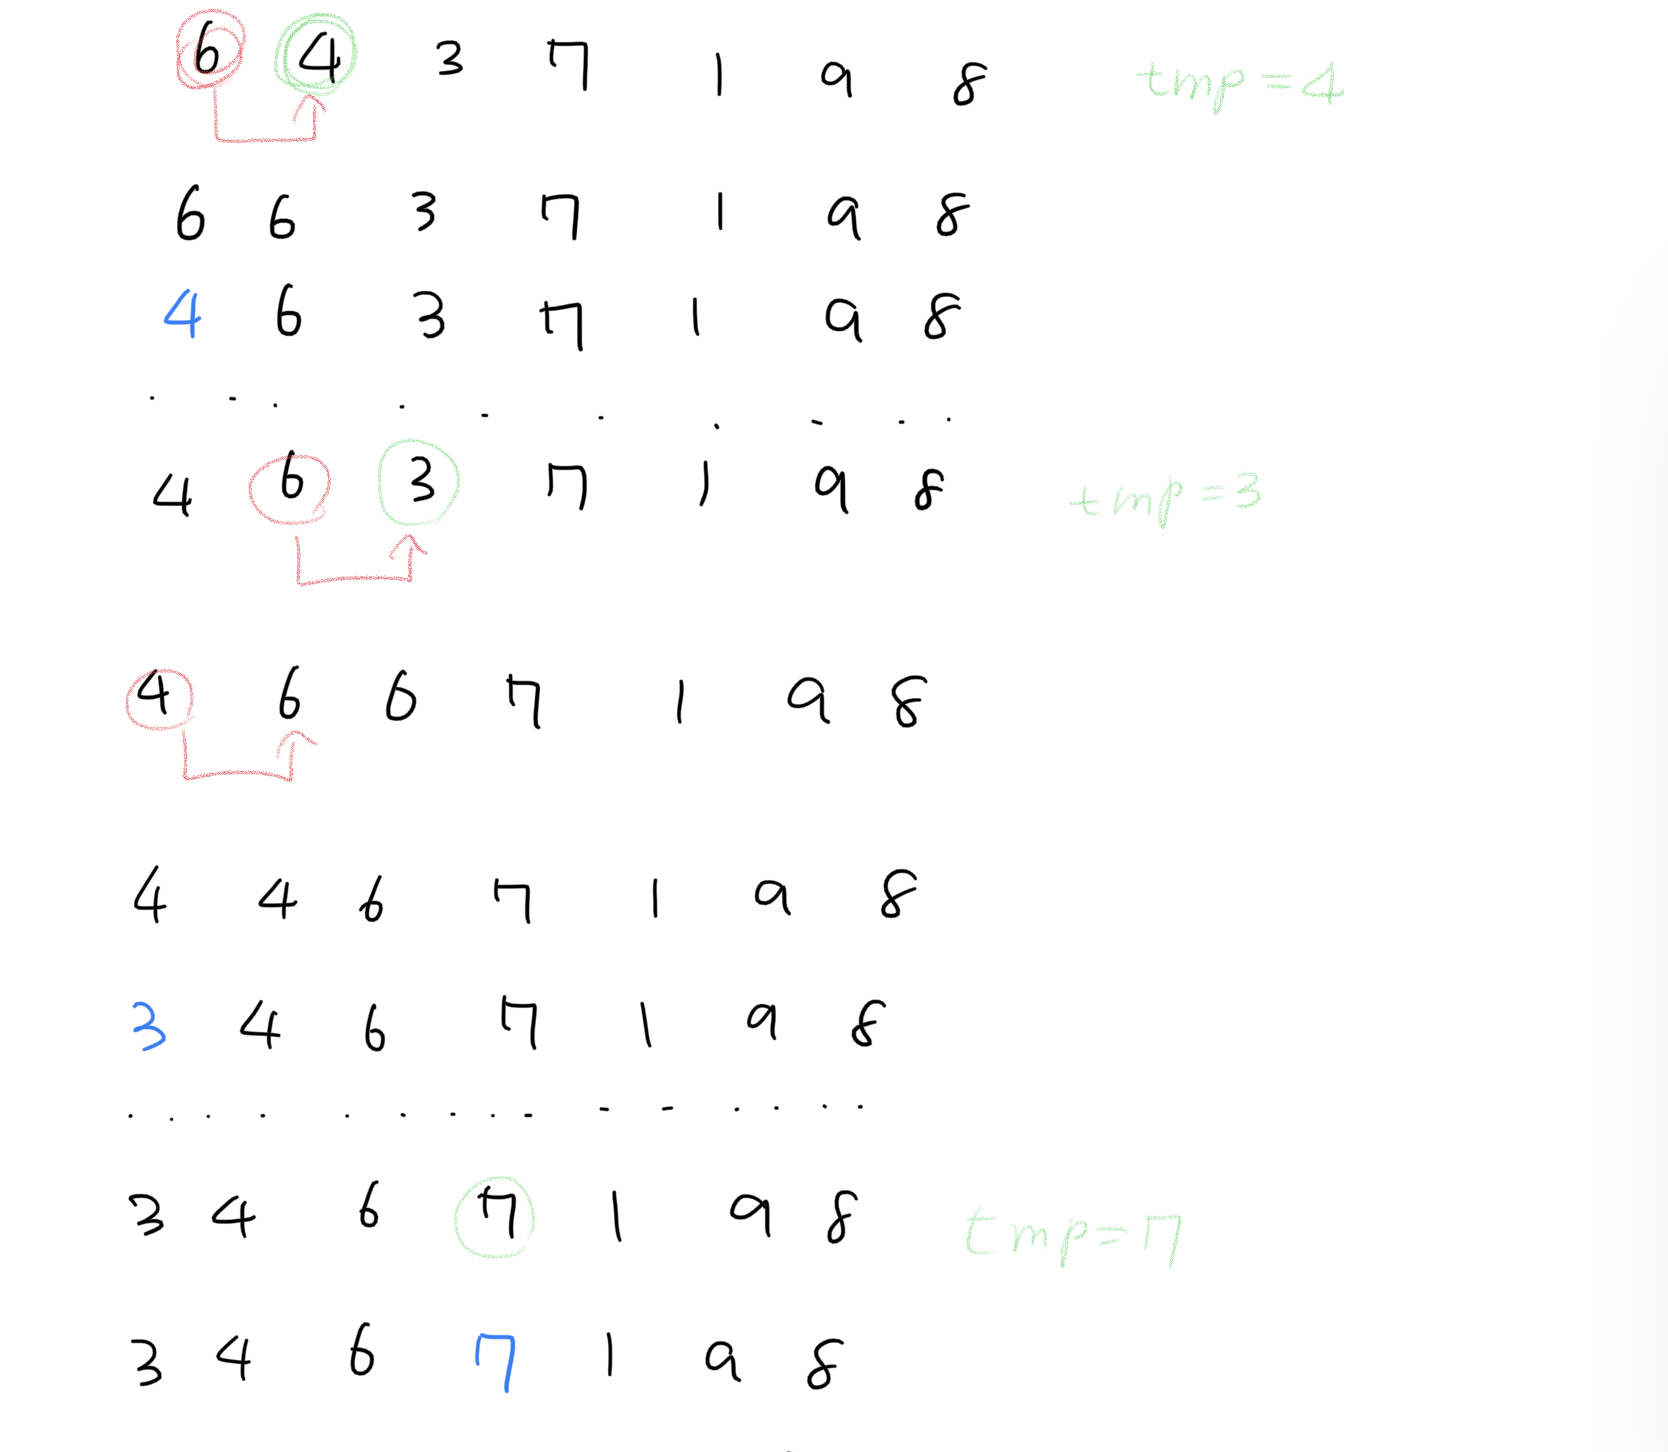 6 4 3 7 1 9 8 tmp=4
6 6 3 7 1 9 8
4 6 3 7 1 9 8
4 6 3 7 1 9 8 tmp=3
4 6 6 7 1 9 8
4 4 6 7 1 9 8
3 4 6 7 1 9 8
3 4 6 7 1 9 8 tmp=7
3 4 6 7 1 9 8